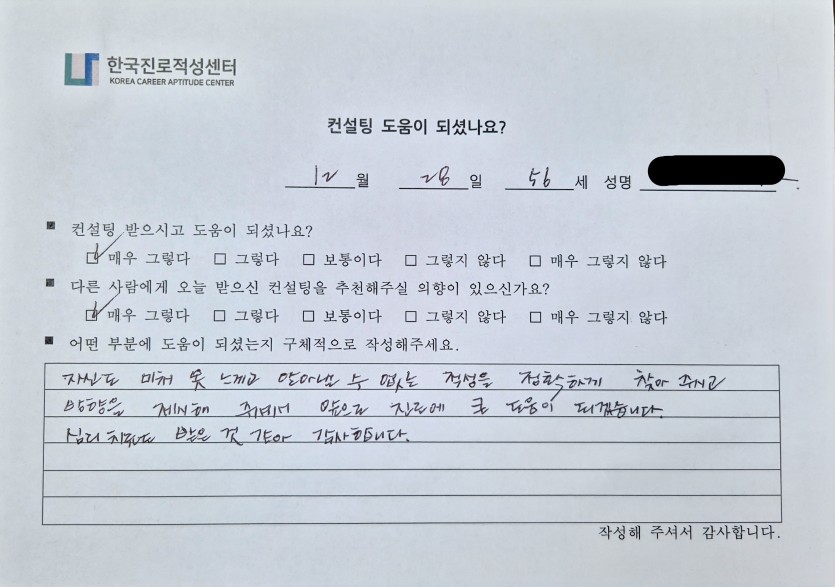 한국진로적성센터
KOREA CAREER APTITUDE CENTER
컨설팅 도움이 되셨나요?
12 월 28 일 56 세 성명
■ 컨설팅 받으시고 도움이 되셨나요?
☑ 매우 그렇다 □ 그렇다 □ 보통이다 □ 그렇지 않다 □ 매우 그렇지 않다
■ 다른 사람에게 오늘 받으신 컨설팅을 추천해주실 의향이 있으신가요?
☑ 매우 그렇다 □ 그렇다 □ 보통이다 □ 그렇지 않다 □ 매우 그렇지 않다
■ 어떤 부분에 도움이 되셨는지 구체적으로 작성해주세요.
자신도 미처 못 느끼고 알아낼 수 없는 적성을 정확하게 찾아 주시고
방향을 제시해 주셔서 앞으로 진로에 큰 도움이 되겠습니다.
심리 치료도 받은 것 같아 감사합니다.
작성해 주셔서 감사합니다.